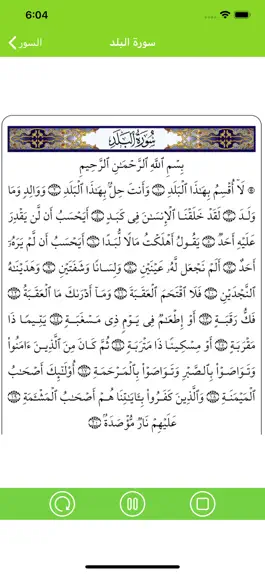 6:04
السور
سورة البلد
سُورَةُ البَلَدِ
بِسْمِ ٱللَّهِ ٱلرَّحْمَٰنِ ٱلرَّحِيمِ
لَآ أُقْسِمُ بِهَٰذَا ٱلْبَلَدِ ١ وَأَنتَ حِلٌّۢ بِهَٰذَا ٱلْبَلَدِ ٢ وَوَالِدٍ وَمَا
وَلَدَ ٣ لَقَدْ خَلَقْنَا ٱلْإِنسَٰنَ فِى كَبَدٍ ٤ أَيَحْسَبُ أَن لَّن يَقْدِرَ
عَلَيْهِ أَحَدٌ ٥ يَقُولُ أَهْلَكْتُ مَالًا لُّبَدًا ٦ أَيَحْسَبُ أَن لَّمْ يَرَهُۥٓ
أَحَدٌ ٧ أَلَمْ نَجْعَل لَّهُۥ عَيْنَيْنِ ٨ وَلِسَانًا وَشَفَتَيْنِ ٩ وَهَدَيْنَٰهُ
ٱلنَّجْدَيْنِ ١٠ فَلَا ٱقْتَحَمَ ٱلْعَقَبَةَ ١١ وَمَآ أَدْرَىٰكَ مَا ٱلْعَقَبَةُ ١٢
فَكُّ رَقَبَةٍ ١٣ أَوْ إِطْعَٰمٌ فِى يَوْمٍ ذِى مَسْغَبَةٍ ١٤ يَتِيمًا ذَا
مَقْرَبَةٍ ١٥ أَوْ مِسْكِينًا ذَا مَتْرَبَةٍ ١٦ ثُمَّ كَانَ مِنَ ٱلَّذِينَ ءَامَنُوا۟
وَتَوَاصَوْا۟ بِٱلصَّبْرِ وَتَوَاصَوْا۟ بِٱلْمَرْحَمَةِ ١٧ أُو۟لَٰٓئِكَ أَصْحَٰبُ
ٱلْمَيْمَنَةِ ١٨ وَٱلَّذِينَ كَفَرُوا۟ بِـَٔايَٰتِنَا هُمْ أَصْحَٰبُ ٱلْمَشْـَٔمَةِ ١٩
عَلَيْهِمْ نَارٌ مُّؤْصَدَةٌۢ ٢٠